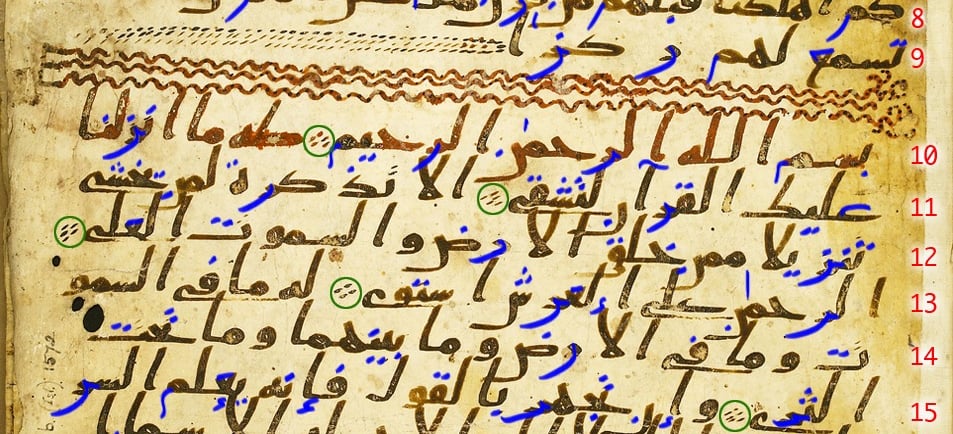 8 كم اهلكنا قبلهم من
9 تسمع لهم ركزا
10 بسم الله الرحمن الرحيم طه ما انزلنا
11 عليك القران لتشقى الا تذكرة لمن يخشى
12 تنزيلا ممن خلق الارض والسموت العلى
13 الرحمن على العرش استوى له ما في السمو
14 ت وما في الارض وما بينهما وما تحت
15 الثرى وان تجهر بالقول فانه يعلم السر
1572